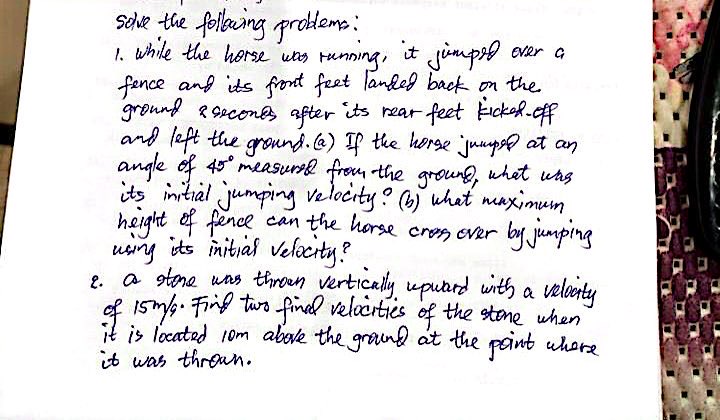 Solve the following problems:
1. While the horse was running, it jumped over a
fence and its front feet landed back on the
ground 2 seconds after its rear feet kicked-off
and left the ground. (a) If the horse jumped at an
angle of 45° measured from the ground, what was
its initial jumping velocity? (b) what maximum
height of fence can the horse cross over by jumping
using its initial velocity?
2. a stone was thrown vertically upward with a velocity
of 15m/s. Find two final velocities of the stone when
it is located 10m above the ground at the point where
it was thrown.